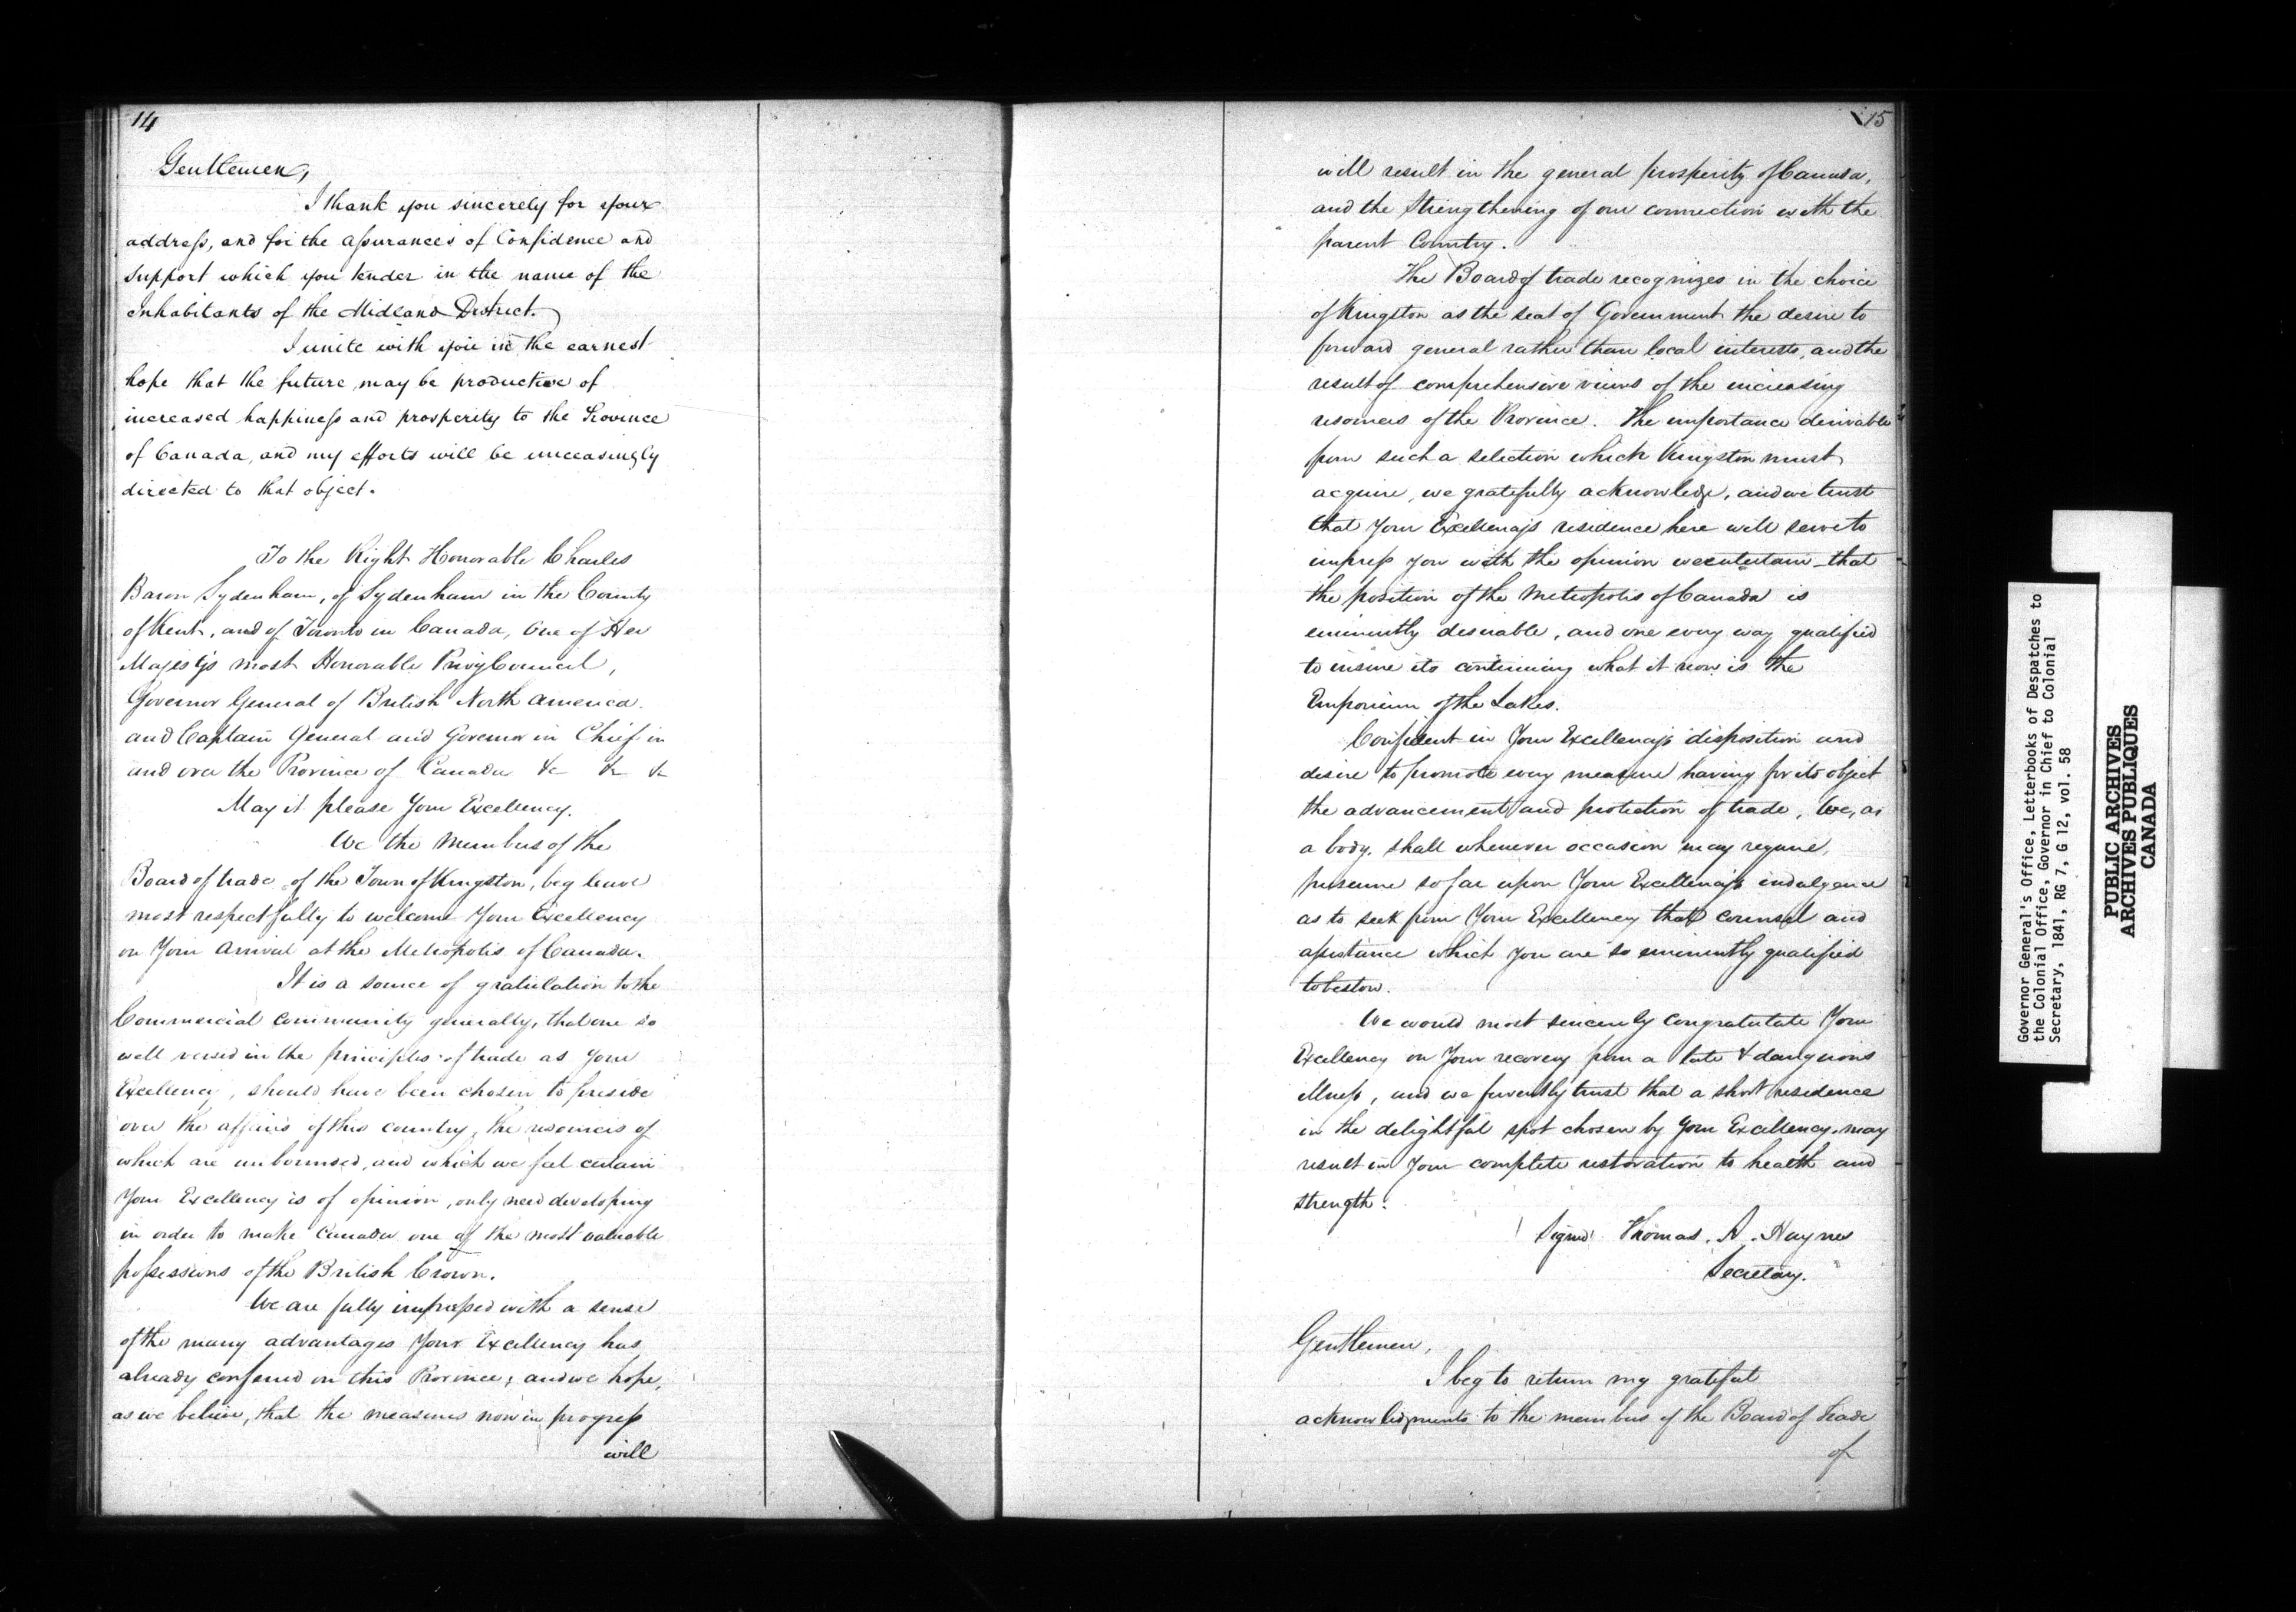 14
Gentlemen,
I thank you sincerely for your
address, and for the assurances of Confidence and
support which you tender in the name of the
Inhabitants of the Midland District.
I unite with you in the earnest
hope that the future may be productive of
increased happiness and prosperity to the Province
of Canada, and my efforts will be unceasingly
directed to that object.
To the Right Honorable Charles
Baron Sydenham, of Sydenham in the County
of Kent, and of Toronto in Canada, One of Her
Majesty's most Honorable Privy Council,
Governor General of British North America.
and Captain General and Governor in Chief in
and over the Province of Canada &c &c &c
May it please Your Excellency.
We the Members of the
Board of trade of the Town of Kingston, beg leave
most respectfully to welcome Your Excellency
on Your arrival at the Metropolis of Canada.
It is a source of gratulation to the
Commercial community generally, that one so
well versed in the principles of trade as Your
Excellency, should have been chosen to preside
over the affairs of this country, the resources of
which are unbounded, and which we feel certain
Your Excellency is of opinion, only need developing
in order to make Canada one of the most valuable
possessions of the British Crown.
We are fully impressed with a sense
of the many advantages Your Excellency has
already conferred on this Province; and we hope,
as we believe, that the measures now in progress
will
15
will result in the general prosperity of Canada,
and the Strengthening of our connection with the
parent Country.
The Board of trade recognizes in the choice
of Kingston as the seat of Government the desire to
forward general rather than local interests, and the
result of comprehensive views of the increasing
resources of the Province. The importance derivable
from such a selection which Kingston must
acquire, we gratefully acknowledge, and we trust
that Your Excellency's residence here will serve to
impress you with the opinion we entertain that
the position of the Metropolis of Canada is
eminently desirable, and one every way qualified
to insure its continuing what it now is the
Emporium of the Lakes.
Confident in Your Excellency's disposition and
desire to promote every measure having for its object
the advancement and protection of trade, We, as
a body, shall whenever occasion may require,
presume so far upon Your Excellency's indulgence
as to seek from Your Excellency that counsel and
assistance which You are so eminently qualified
to bestow.
We would most sincerely congratulate Your
Excellency on Your recovery from a late & dangerous
illness, and we fervently trust that a short residence
in the delightful spot chosen by Your Excellency may
result in Your complete restoration to health and
strength.
Signed Thomas. A. Haynes
Secretary.
Gentlemen,
I beg to return my grateful
acknowledgments to the members of the Board of Trade
of
Governor General's Office, Letterbooks of Despatches to
the Colonial Office, Governor in Chief to Colonial
Secretary, 1841, RG 7, G 12, vol. 58
PUBLIC ARCHIVES
ARCHIVES PUBLIQUES
CANADA